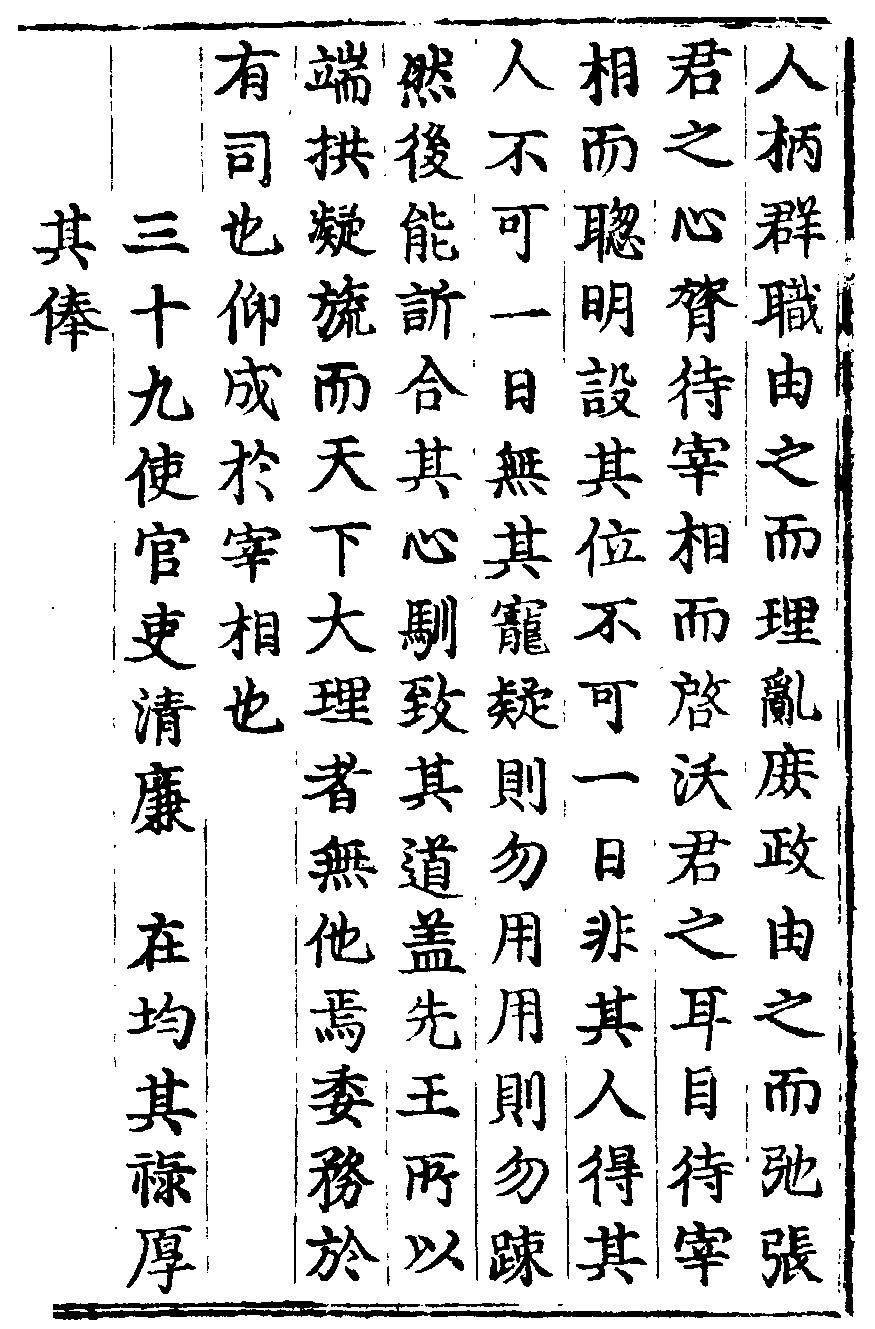 人柄群職由之而理亂庻政由之而弛張
君之心膂待宰相而啓沃君之耳目待宰
相而聦明設其位不可一日非其人得其
人不可一日無其寵疑則勿用用則勿踈
然後能訢合其心馴致其道盖先王所以
端拱凝旒而天下大理者無他焉委務於
有司也仰成於宰相也
三十九使官吏清廉　在均其祿厚
其俸